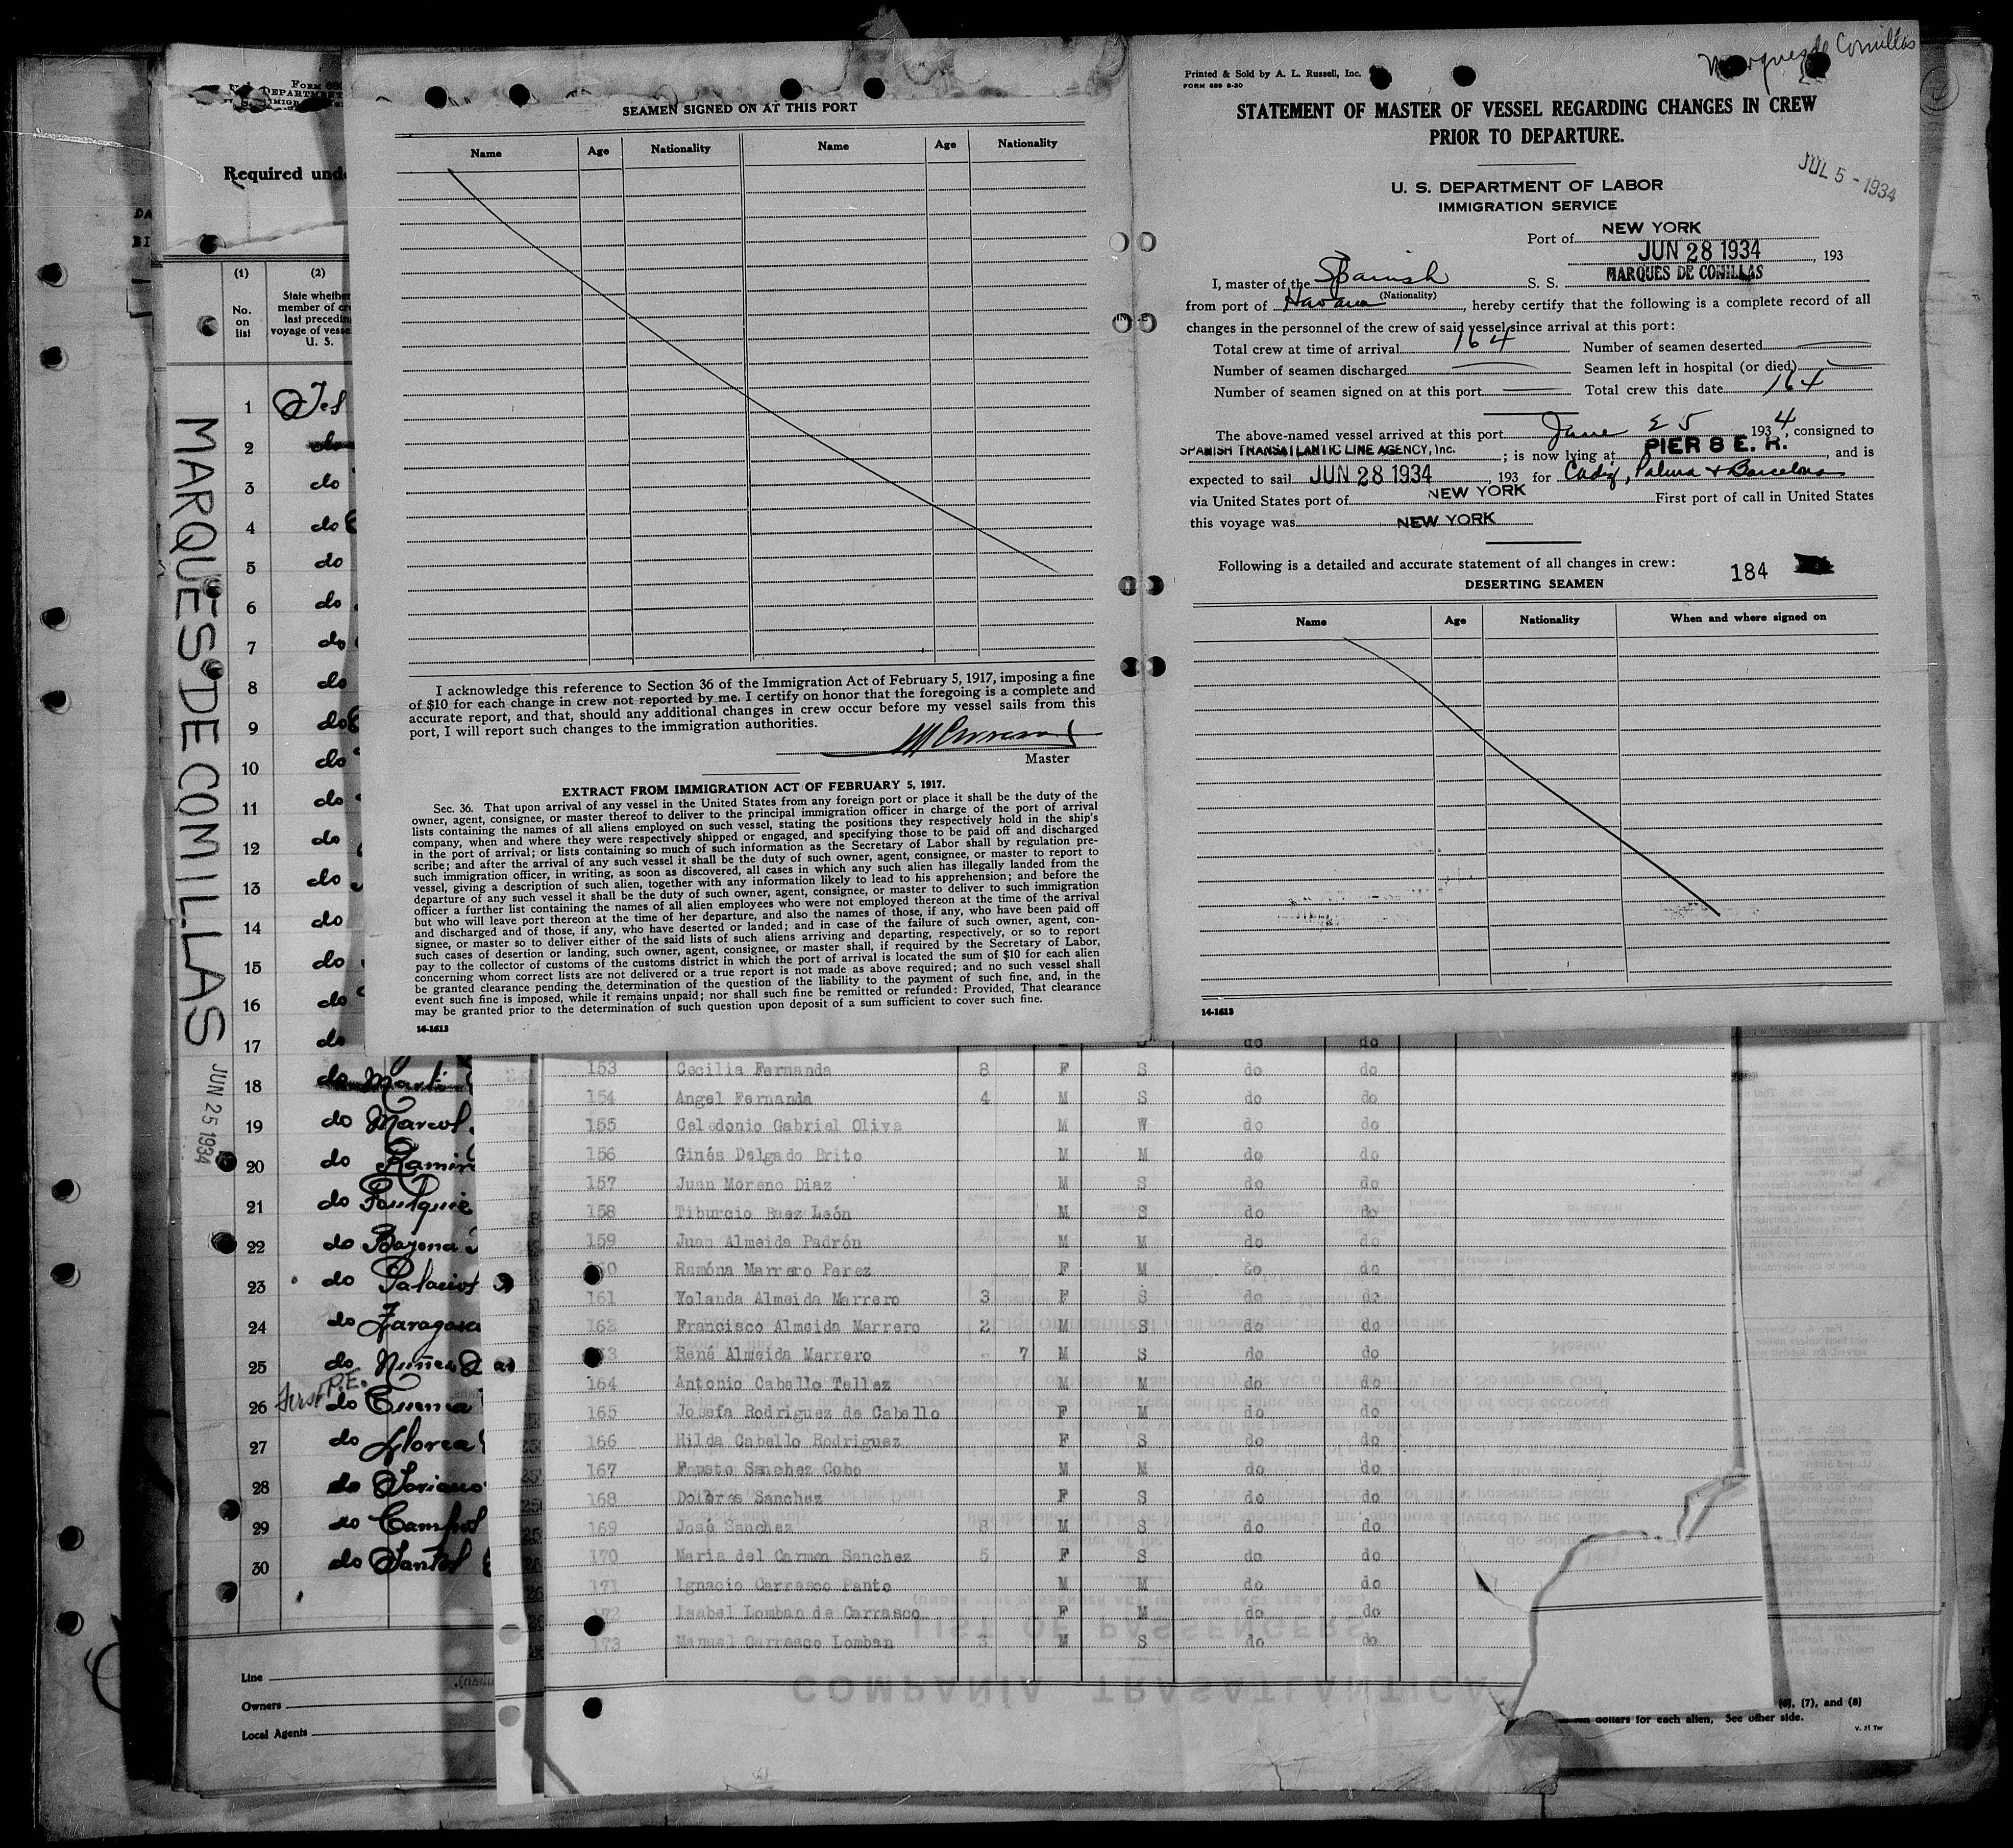 Marques de Comillas
Printed & Sold by A. L. Russell, Inc.
FORM 689 8-30
STATEMENT OF MASTER OF VESSEL REGARDING CHANGES IN CREW
PRIOR TO DEPARTURE.
JUL 5 - 1934
U. S. DEPARTMENT OF LABOR
IMMIGRATION SERVICE
Port of NEW YORK
JUN 28 1934, 193
I, master of the Spanish S. S. MARQUES DE COMILLAS
(Nationality)
from port of Havana, hereby certify that the following is a complete record of all
changes in the personnel of the crew of said vessel since arrival at this port:
Total crew at time of arrival 164 Number of seamen deserted
Number of seamen discharged Seamen left in hospital (or died)
Number of seamen signed on at this port Total crew this date 164
The above-named vessel arrived at this port June 25 1934, consigned to
SPANISH TRANSATLANTIC LINE AGENCY, Inc. ; is now lying at PIER 8 E. R. , and is
expected to sail JUN 28 1934, 193 for Cadiz, Palma & Barcelona
via United States port of NEW YORK First port of call in United States
this voyage was NEW YORK
Following is a detailed and accurate statement of all changes in crew:
184
DESERTING SEAMEN
Name Age Nationality When and where signed on
14-1613
SEAMEN SIGNED ON AT THIS PORT
Name Age Nationality Name Age Nationality
I acknowledge this reference to Section 36 of the Immigration Act of February 5, 1917, imposing a fine
of $10 for each change in crew not reported by me. I certify on honor that the foregoing is a complete and
accurate report, and that, should any additional changes in crew occur before my vessel sails from this
port, I will report such changes to the immigration authorities.
Master
EXTRACT FROM IMMIGRATION ACT OF FEBRUARY 5, 1917.
Sec. 36. That upon arrival of any vessel in the United States from any foreign port or place it shall be the duty of the
owner, agent, consignee, or master thereof to deliver to the principal immigration officer in charge of the port of arrival
lists containing the names of all aliens employed on such vessel, stating the positions they respectively hold in the ship's
company, when and where they were respectively shipped or engaged, and specifying those to be paid off and discharged
in the port of arrival; or lists containing so much of such information as the Secretary of Labor shall by regulation pre-
scribe; and after the arrival of any such vessel it shall be the duty of such owner, agent, consignee, or master to report to
such immigration officer, in writing, as soon as discovered, all cases in which any such alien has illegally landed from the
vessel, giving a description of such alien, together with any information likely to lead to his apprehension; and before the
departure of any such vessel it shall be the duty of such owner, agent, consignee, or master to deliver to such immigration
officer a further list containing the names of all alien employees who were not employed thereon at the time of the arrival
but who will leave port thereon at the time of her departure, and also the names of those, if any, who have been paid off
and discharged and of those, if any, who have deserted or landed; and in case of the failure of such owner, agent, con-
signee, or master so to deliver either of the said lists of such aliens arriving and departing, respectively, or so to report
such cases of desertion or landing, such owner, agent, consignee, or master shall, if required by the Secretary of Labor,
pay to the collector of customs of the customs district in which the port of arrival is located the sum of $10 for each alien
concerning whom correct lists are not delivered or a true report is not made as above required; and no such vessel shall
be granted clearance pending the determination of the question of the liability to the payment of such fine, and, in the
event such fine is imposed, while it remains unpaid; nor shall such fine be remitted or refunded: Provided, That clearance
may be granted prior to the determination of such question upon deposit of a sum sufficient to cover such fine.
14-1613
Required und
(1) (2)
No. on list
State whether
member of
last preceding
voyage of vesse
U. S.
MARQUES DE COMILLAS
JUN 25 1934
1
2 do
3 do
4 do
5 do
6 do
7 do
8 do
9 do
10 do
11 do
12 do
13 do
14 do
15 do
16 do
17 do
18 do
19 do
20 do
21 do
22 do
23 do Palacios
24 do Zaragoza
25 do Nuñez
26 First P.E. do Cuenca
27 do Llorca
28 do Soriano
29 do
30 do Santos
Line
Owners
Local Agents
do do
153 Cecilia Fernanda 8 F S do do
154 Angel Fernanda 4 M S do do
155 Celedonio Gabriel Oliva M W do do
156 Ginés Delgado Brito M M do do
157 Juan Moreno Diaz M S do do
158 Tiburcio Baez León M S do do
159 Juan Almeida Padrón M M do do
Ramóna Marrero Perez F M do do
161 Yolanda Almeida Marrero 3 F S do do
162 Francisco Almeida Marrero 2 M S do do
René Almeida Marrero - 7 M S do do
164 Antonio Cabello Tellez M M do do
165 Josefa Rodriguez de Cabello F M do do
166 Hilda Cabello Rodriguez F S do do
167 Fausto Sanchez Cobo M M do do
168 Dolores Sanchez F S do do
169 José Sanchez 8 M S do do
170 Maria del Carmen Sanchez 5 F S do do
171 Ignacio Carrasco Panto M M do do
172 Isabel Lomban de Carrasco F M do do
173 Manuel Carrasco Lomban 3 M S do do
LIST OF PASSENGERS
COMPAÑÍA TRASATLANTICA
(6), (7), and (8)
dollars for each alien, See other side.